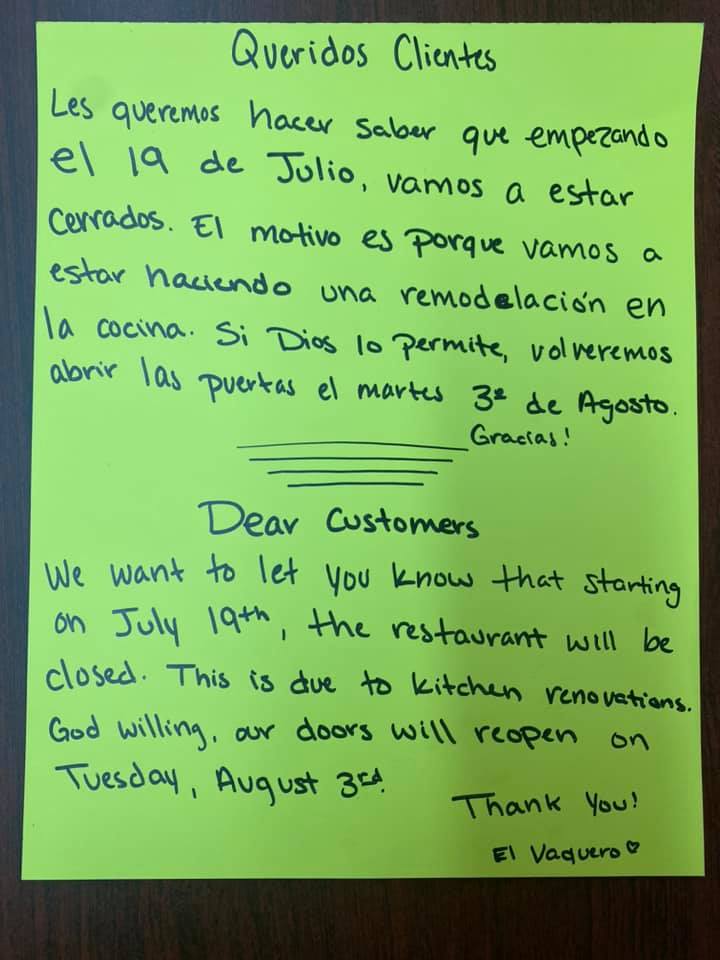 Queridos Clientes
Les queremos hacer saber que empezando
el 19 de Julio, vamos a estar
cerrados. El motivo es porque vamos a
estar haciendo una remodelación en
la cocina. Si Dios lo permite, volveremos
abrir las puertas el martes 3º de Agosto.
Gracias!
Dear Customers
We want to let you know that starting
on July 19th, the restaurant will be
closed. This is due to kitchen renovations.
God willing, our doors will reopen on
Tuesday, August 3rd.
Thank You!
El Vaquero♡